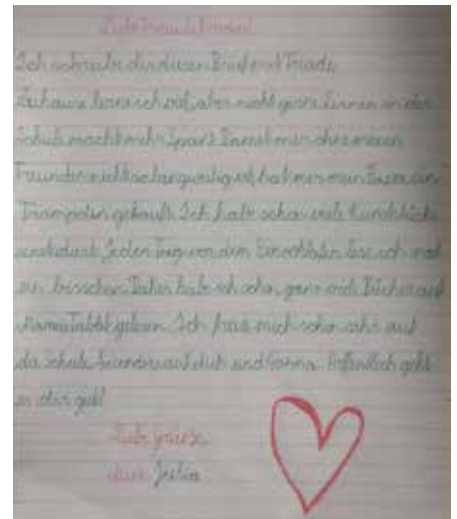 Ich schreibe dir diesen Brief mit Freude.
Zuhause lerne ich viel, aber nicht gerne. Lernen in der
Schule macht mehr Spaß. Damit mir ohne meinen
Freunden nicht so langweilig ist, hat mir mein Papa ein
Trampolin gekauft. Ich habe schon viele Kunststücke
einstudiert. Jeden Tag vor dem Einschlafen lese ich noch
ein bisschen. Daher habe ich schon ganz viele Bücher auf
Mamas gelesen. Ich freu mich schon sehr auf
die Schule, besonders auf dich und Hanna. Hoffentlich geht
es dir gut!
Liebe Grüße
Julia